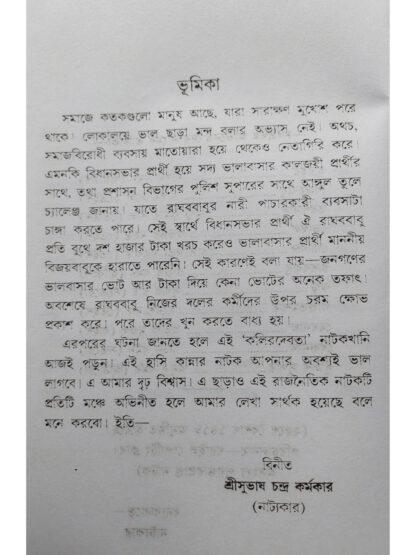 ভূমিকা
সমাজে কতকগুলো মানুষ আছে, যারা সারাক্ষণ মুখোশ পরে
থাকে। লোকালয়ে ভাল ছাড়া মন্দ বলার অভ্যাস নেই। অথচ,
সমাজবিরোধী ব্যবসায় মাতোয়ারা হয়ে থেকেও নেতাগিরি করে।
এমনকি বিধানসভার প্রার্থী হয়ে সদ্য ভালাবাসার কালজয়ী প্রার্থীর
সাথে, তথা প্রশাসন বিভাগের পুলিশ সুপারের সাথে আঙ্গুল তুলে
চ্যালেঞ্জ জানায়। যাতে রাঘববাবুর নারী পাচারকারী ব্যবসাটা
চাঙ্গা করতে পারে। সেই স্বার্থে বিধানসভার প্রার্থী ঐ রাঘববাবু
প্রতি বুথে দশ হাজার টাকা খরচ করেও ভালাবাসার প্রার্থী মাননীয়
বিজয়বাবুকে হারাতে পারেনি। সেই কারণেই বলা যায়—জনগণের
ভালবাসার ভোট আর টাকা দিয়ে কেনা ভোটের অনেক তফাৎ।
অবশেষে রাঘববাবু নিজের দলের কর্মীদের উপর চরম ক্ষোভ
প্রকাশ করে। পরে তাদের খুন করতে বাধ্য হয়।
এরপরের ঘটনা জানতে হলে এই ‘কলিরদেবতা’ নাটকখানি
আজই পড়ুন। এই হাসি কান্নার নাটক আপনার অবশ্যই ভাল
লাগবে। এ আমার দৃঢ় বিশ্বাস। এ ছাড়াও এই রাজনৈতিক নাটকটি
প্রতিটি মঞ্চে অভিনীত হলে আমার লেখা সার্থক হয়েছে বলে
মনে করবো। ইতি—
বিনীত
শ্রীসুভাষ চন্দ্র কর্মকার
(নাট্যকার)